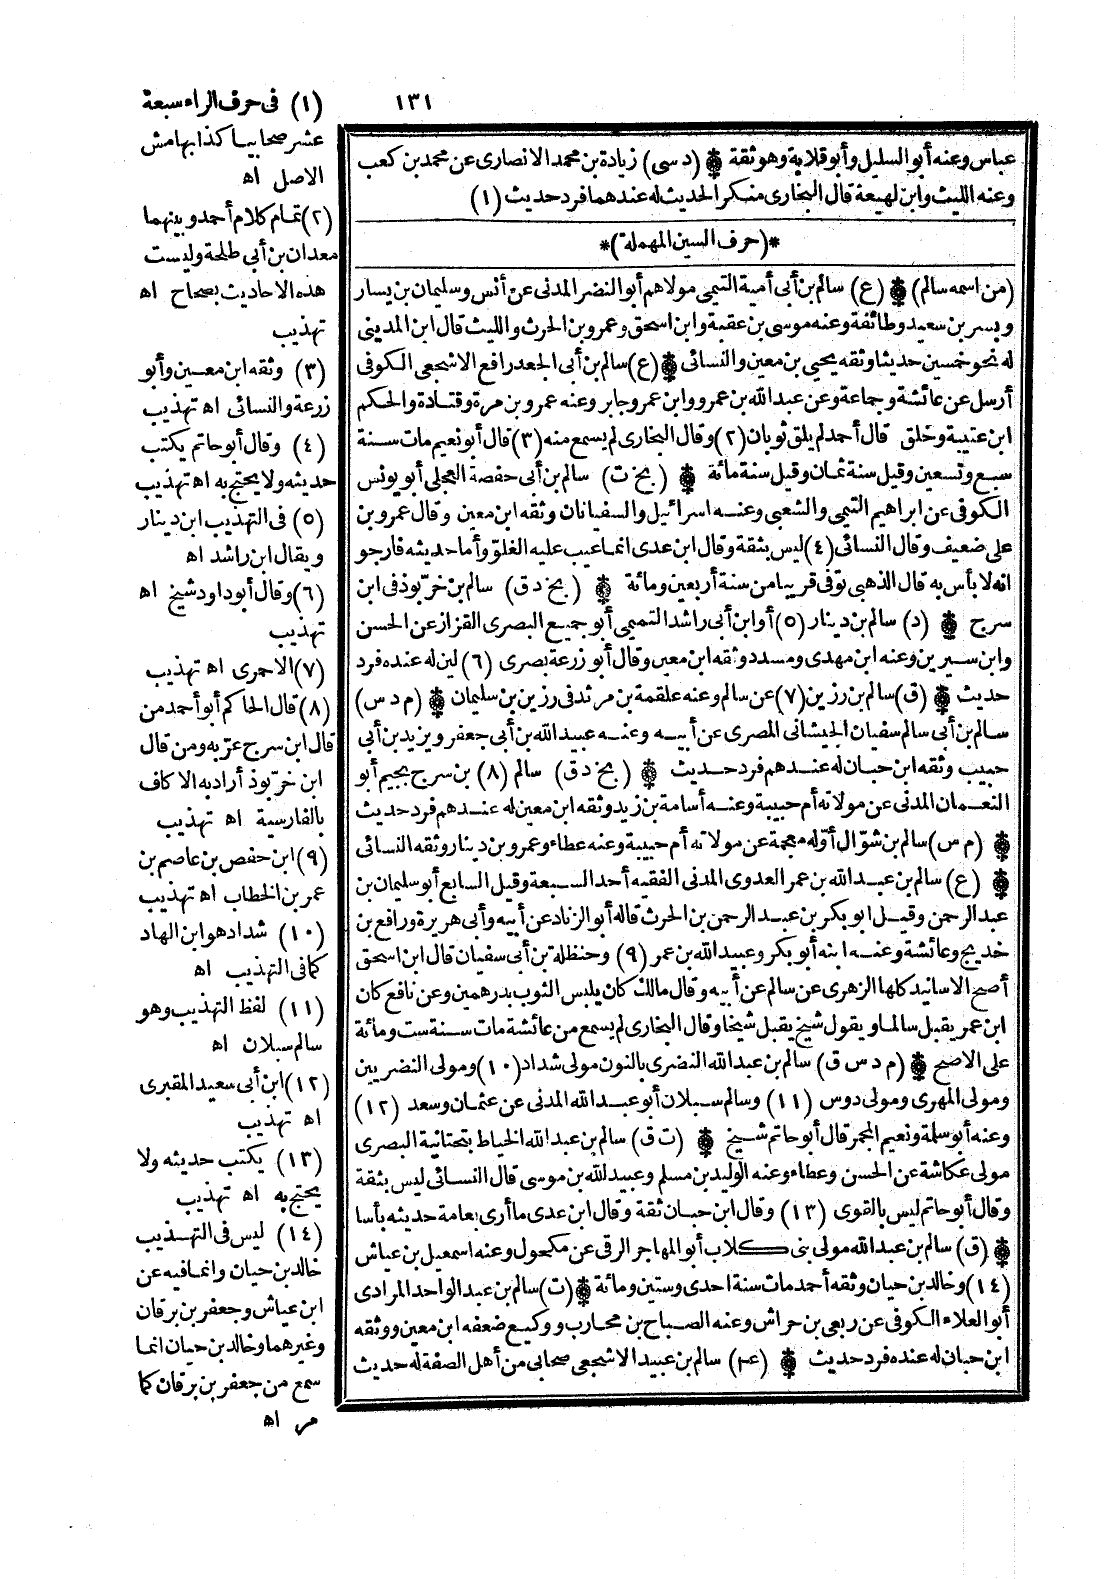 ١٣١
عباس وعنه أبو السليل وأبو قلابة وهو ثقة ۞ (د سى) زيادة بن محمد الانصارى عن محمد بن كعب
وعنه الليث وابن لهيعة قال البخارى منكر الحديث له عندهما فرد حديث (١)
*(حرف السين المهملة)*
(من اسمه سالم) ۞ (ع) سالم بن أبى أمية التيمى مولاهم أبو النضر المدنى عن أنس وسليمان بن يسار
وبسر بن سعيد وطائفة وعنه موسى بن عقبة وابن اسحق وعمرو بن الحرث والليث قال ابن المدينى
له نحو خمسين حديثا وثقه يحيى بن معين والنسائى ۞ (ع) سالم بن أبى الجعد رافع الاشجعى الكوفى
أرسل عن عائشة وجماعة وعن عبدالله بن عمرو وابن عمر وجابر وعنه عمرو بن مرة وقتادة والحكم
ابن عتيبة وخلق قال أحمد لم يلق ثوبان (٢) وقال البخارى لم يسمع منه (٣) قال أبو نعيم مات سنة
سبع وتسعين وقيل سنة ثمان وقيل سنة مائة ۞ (بخ ت) سالم بن أبى حفصة العجلى أبو يونس
الكوفى عن ابراهيم التيمى والشعبى وعنه اسرائيل والسفيانان وثقه ابن معين وقال عمرو بن
على ضعيف وقال النسائى (٤) ليس بثقة وقال ابن عدى انما عيب عليه الغلو وأما حديثه فارجو
انه لا بأس به قال الذهبى توفى قريبا من سنة أربعين ومائة ۞ (بخ د ق) سالم بن خرّبوذ فى ابن
سرج ۞ (د) سالم بن دينار (٥) أو ابن أبى راشد التميمى أبو جميع البصرى القزاز عن الحسن
وابن سيرين وعنه ابن مهدى ومسدد وثقه ابن معين وقال أبو زرعة بصرى (٦) لين له عنده فرد
حديث ۞ (ق) سالم بن رزين (٧) عن سالم وعنه علقمة بن مرثد فى رزين بن سليمان ۞ (م د س)
سالم بن أبى سالم سفيان الجيشانى المصرى عن أبيه وعنه عبيد الله بن أبى جعفر ويزيد بن أبى
حبيب وثقه ابن حبان له عندهم فرد حديث ۞ (بخ د ق) سالم (٨) بن سرج بجيم أبو
النعمان المدنى عن مولاته أم حبيبة وعنه أسامة بن زيد وثقه ابن معين له عندهم فرد حديث
۞ (م س) سالم بن شوّال أوّله معجمة عن مولاته أم حبيبة وعنه عطاء وعمرو بن دينار وثقه النسائى
۞ (ع) سالم بن عبدالله بن عمر العدوى المدنى الفقيه أحد السبعة وقيل السابع أبو سليمان بن
عبد الرحمن وقيل ابو بكر بن عبد الرحمن بن الحرث قاله أبو الزناد عن أبيه وأبى هريرة ورافع بن
خديج وعائشة وعنه ابنه أبو بكر وعبيد الله بن عمر (٩) وحنظلة بن أبى سفيان قال ابن اسحق
أصح الاسانيد كلها الزهرى عن سالم عن أبيه وقال مالك كان يلبس الثوب بدرهمين وعن نافع كان
ابن عمر يقبل سالما ويقول شيخ يقبل شيخا وقال البخارى لم يسمع من عائشة مات سنة ست ومائة
على الاصح ۞ (م د س ق) سالم بن عبدالله النضرى بالنون مولى شداد (١٠) ومولى النضريين
ومولى المهرى ومولى دوس (١١) وسالم سبلان أبو عبد الله المدنى عن عثمان وسعد (١٢)
وعنه أبو سلمة ونعيم المجمر قال أبو حاتم شيخ ۞ (ت ق) سالم بن عبد الله الخياط بتحتانية البصرى
مولى عكاشة عن الحسن وعطاء وعنه الوليد بن مسلم وعبيد الله بن موسى قال النسائى ليس بثقة
وقال أبو حاتم ليس بالقوى (١٣) وقال ابن حبان ثقة وقال ابن عدى ما أرى بعامة حديثه بأسا
۞ (ق) سالم بن عبد الله مولى بنى كلاب أبو المهاجر الرقى عن مكحول وعنه اسمعيل بن عياش
(١٤) وخالد بن حيان وثقه أحمد مات سنة احدى وستين ومائة ۞ (ت) سالم بن عبد الواحد المرادى
أبو العلاء الكوفى عن ربعى بن حراش وعنه الصباح بن محارب ووكيع ضعفه ابن معين ووثقه
ابن حبان له عنده فرد حديث ۞ (عـ) سالم بن عبيد الاشجعى صحابى من أهل الصفة له حديث
(١) فى حرف الراء سبعة
عشر صحابيا كذا بهامش
الاصل اه
(٢) تمام كلام أحمد وبينهما
معدان بن أبى طلحة وليست
هذه الاحاديث بصحاح اه
تهذيب
(٣) وثقه ابن معين وأبو
زرعة والنسائى اه تهذيب
(٤) وقال أبو حاتم يكتب
حديثه ولا يحتج به اه تهذيب
(٥) فى التهذيب ابن دينار
ويقال ابن راشد اه
(٦) وقال أبو داود شيخ اه
تهذيب
(٧) الاحمرى اه تهذيب
(٨) قال الحاكم أبو أحمد من
قال ابن سرج عرّبه ومن قال
ابن خرّبوذ أراد به الاكاف
بالفارسية اه تهذيب
(٩) ابن حفص بن عاصم بن
عمر بن الخطاب اه تهذيب
(١٠) شداد هو ابن الهاد
كما فى التهذيب اه
(١١) لفظ التهذيب وهو
سالم سبلان اه
(١٢) ابن أبى سعيد المقبرى
اه تهذيب
(١٣) يكتب حديثه ولا
يحتج به اه تهذيب
(١٤) ليس فى التهذيب
خالد بن حيان وانما فيه عن
ابن عياش وجعفر بن برقان
وغيرهما وخالد بن حيان انما
سمع من جعفر بن برقان كما
مر اه